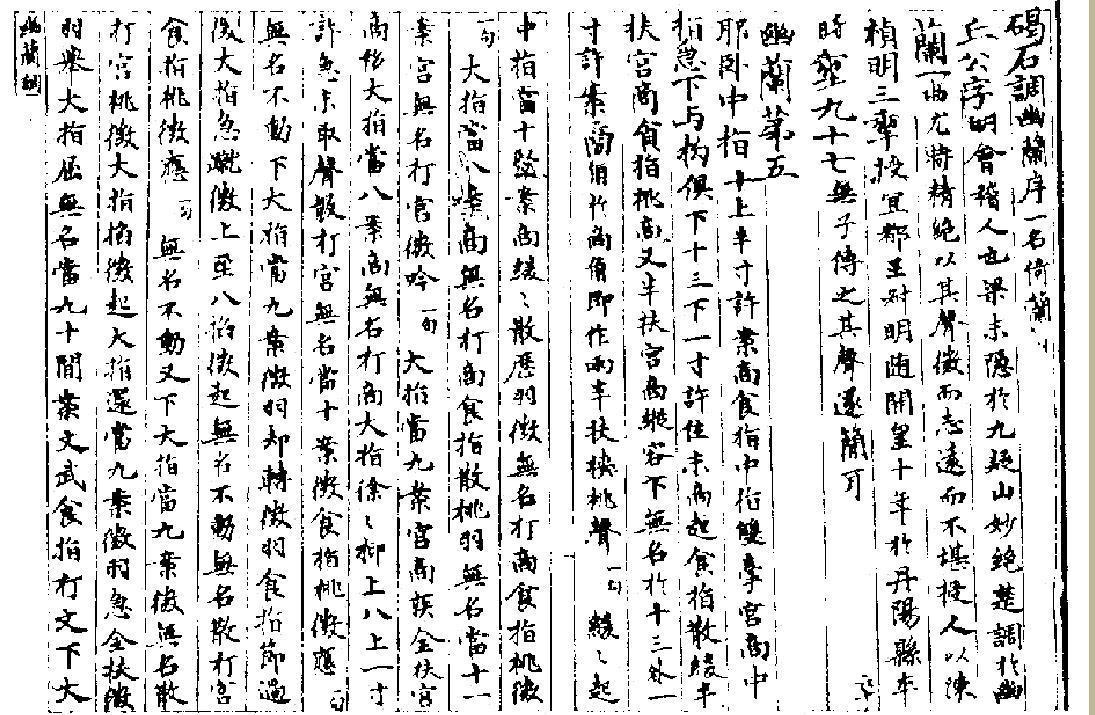 碣石調幽蘭序一名倚蘭
丘公字明會稽人也梁末隱於九疑山妙絕楚調於幽
蘭一曲尤特精絕以其聲微而志遠而不堪授人以陳
禎明三年授宜都王叔明隨開皇十年於丹陽縣卒
時年九十七無子傳之其聲遂簡耳
幽蘭第五
耶臥中指十上半寸許案商食指中指雙牽宮商中
指急下与拘俱下十三下一寸許住末商起食指散緩半
扶宮商食指挑商又半扶宮商縱容下無名於十三外一
寸許案商角於商角即作兩半扶挾挑聲一句 緩〻起
中指當十案商緩〻散歷羽徵無名打商食指挑徵
一句 大指當八案商無名打商食指散挑羽無名當十一
案宮無名打宮徵吟一句 大指當九案宮商疾全扶宮
商移大指當八案商無名打商大指徐〻抑上八上一寸
許急末取聲散打宮無名當十案徵食指挑徵應一句
無名不動下大指當九案徵羽却轉徵羽食指節過
徵大指急蹴徵上至八掐徵起無名不動無名散打宮
食指挑徵應一句 無名不動又下大指當九案徵無名散
打宮挑徵大指掐徵起大指還當九案徵羽急全扶徵
羽舉大指屈無名當九十間案文武食指打文下大
幽蘭